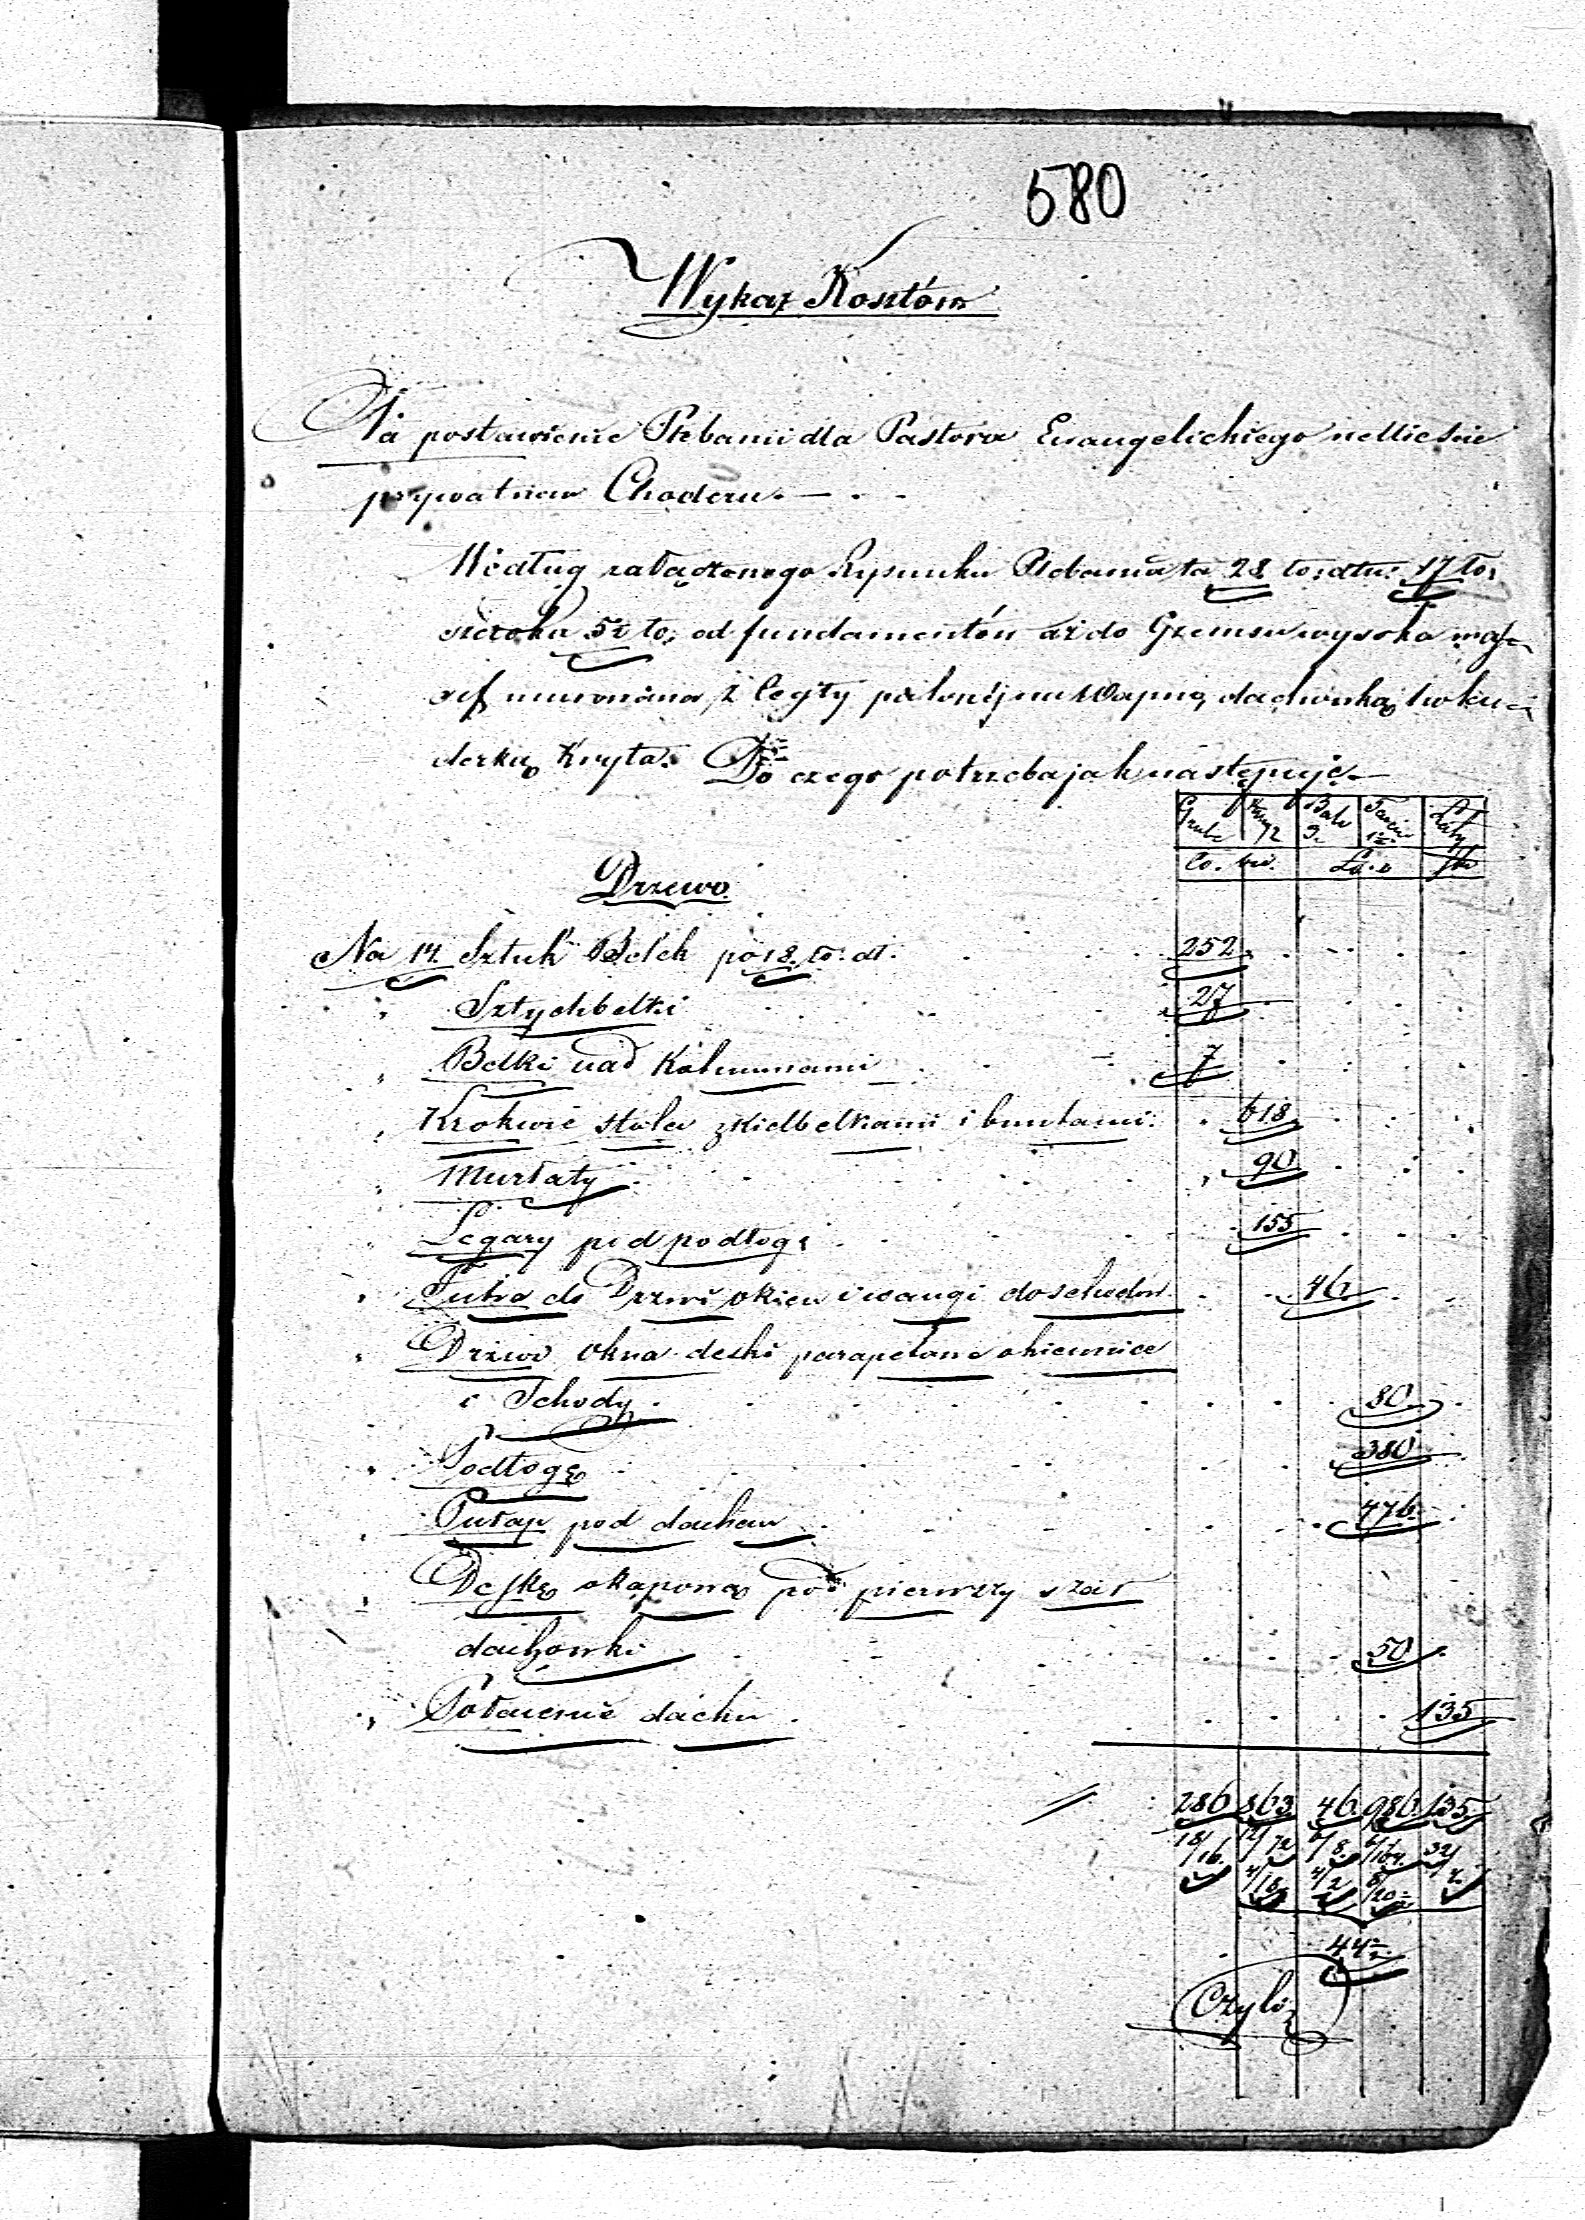 580
Wykaz Kosztów
Na postawienie Plebanii dla Pastora Ewangelickiego w Mieście
prywatnem Chodczu. —
Według załączonego Rysunku Plebania ta 28 ło: dłu: 17 ło:
szeroka 5½ ło: od fundamentów aż do Gzemsu wysoka maſ-
sif murowana, z Cegły palonéj na Wapno, dachówką
Kryta. Do czego potrzeba jak następuje. —
Drzewo
Na 14. Sztuk Belek po 18. ło: dł. 252
" Sztychbelki 27
" Belki nad Kolumnami 7
" Krokwie stolce z Kielbelkami i buntami. 618
" Murłaty 90
" Legary pod podłogę 155
" Futra do Drzwi okien i wangi do schodów 46
" Drzwi Okna deski parapetowe okiennice
i Schody 80
" Podłogę 380
" Pułap pod dachem 476
" Deſkę okapową pod pierwszy szar
dachówki 50
" Połacenie dachu 135
286 863 46 986 135
44½
Czyli